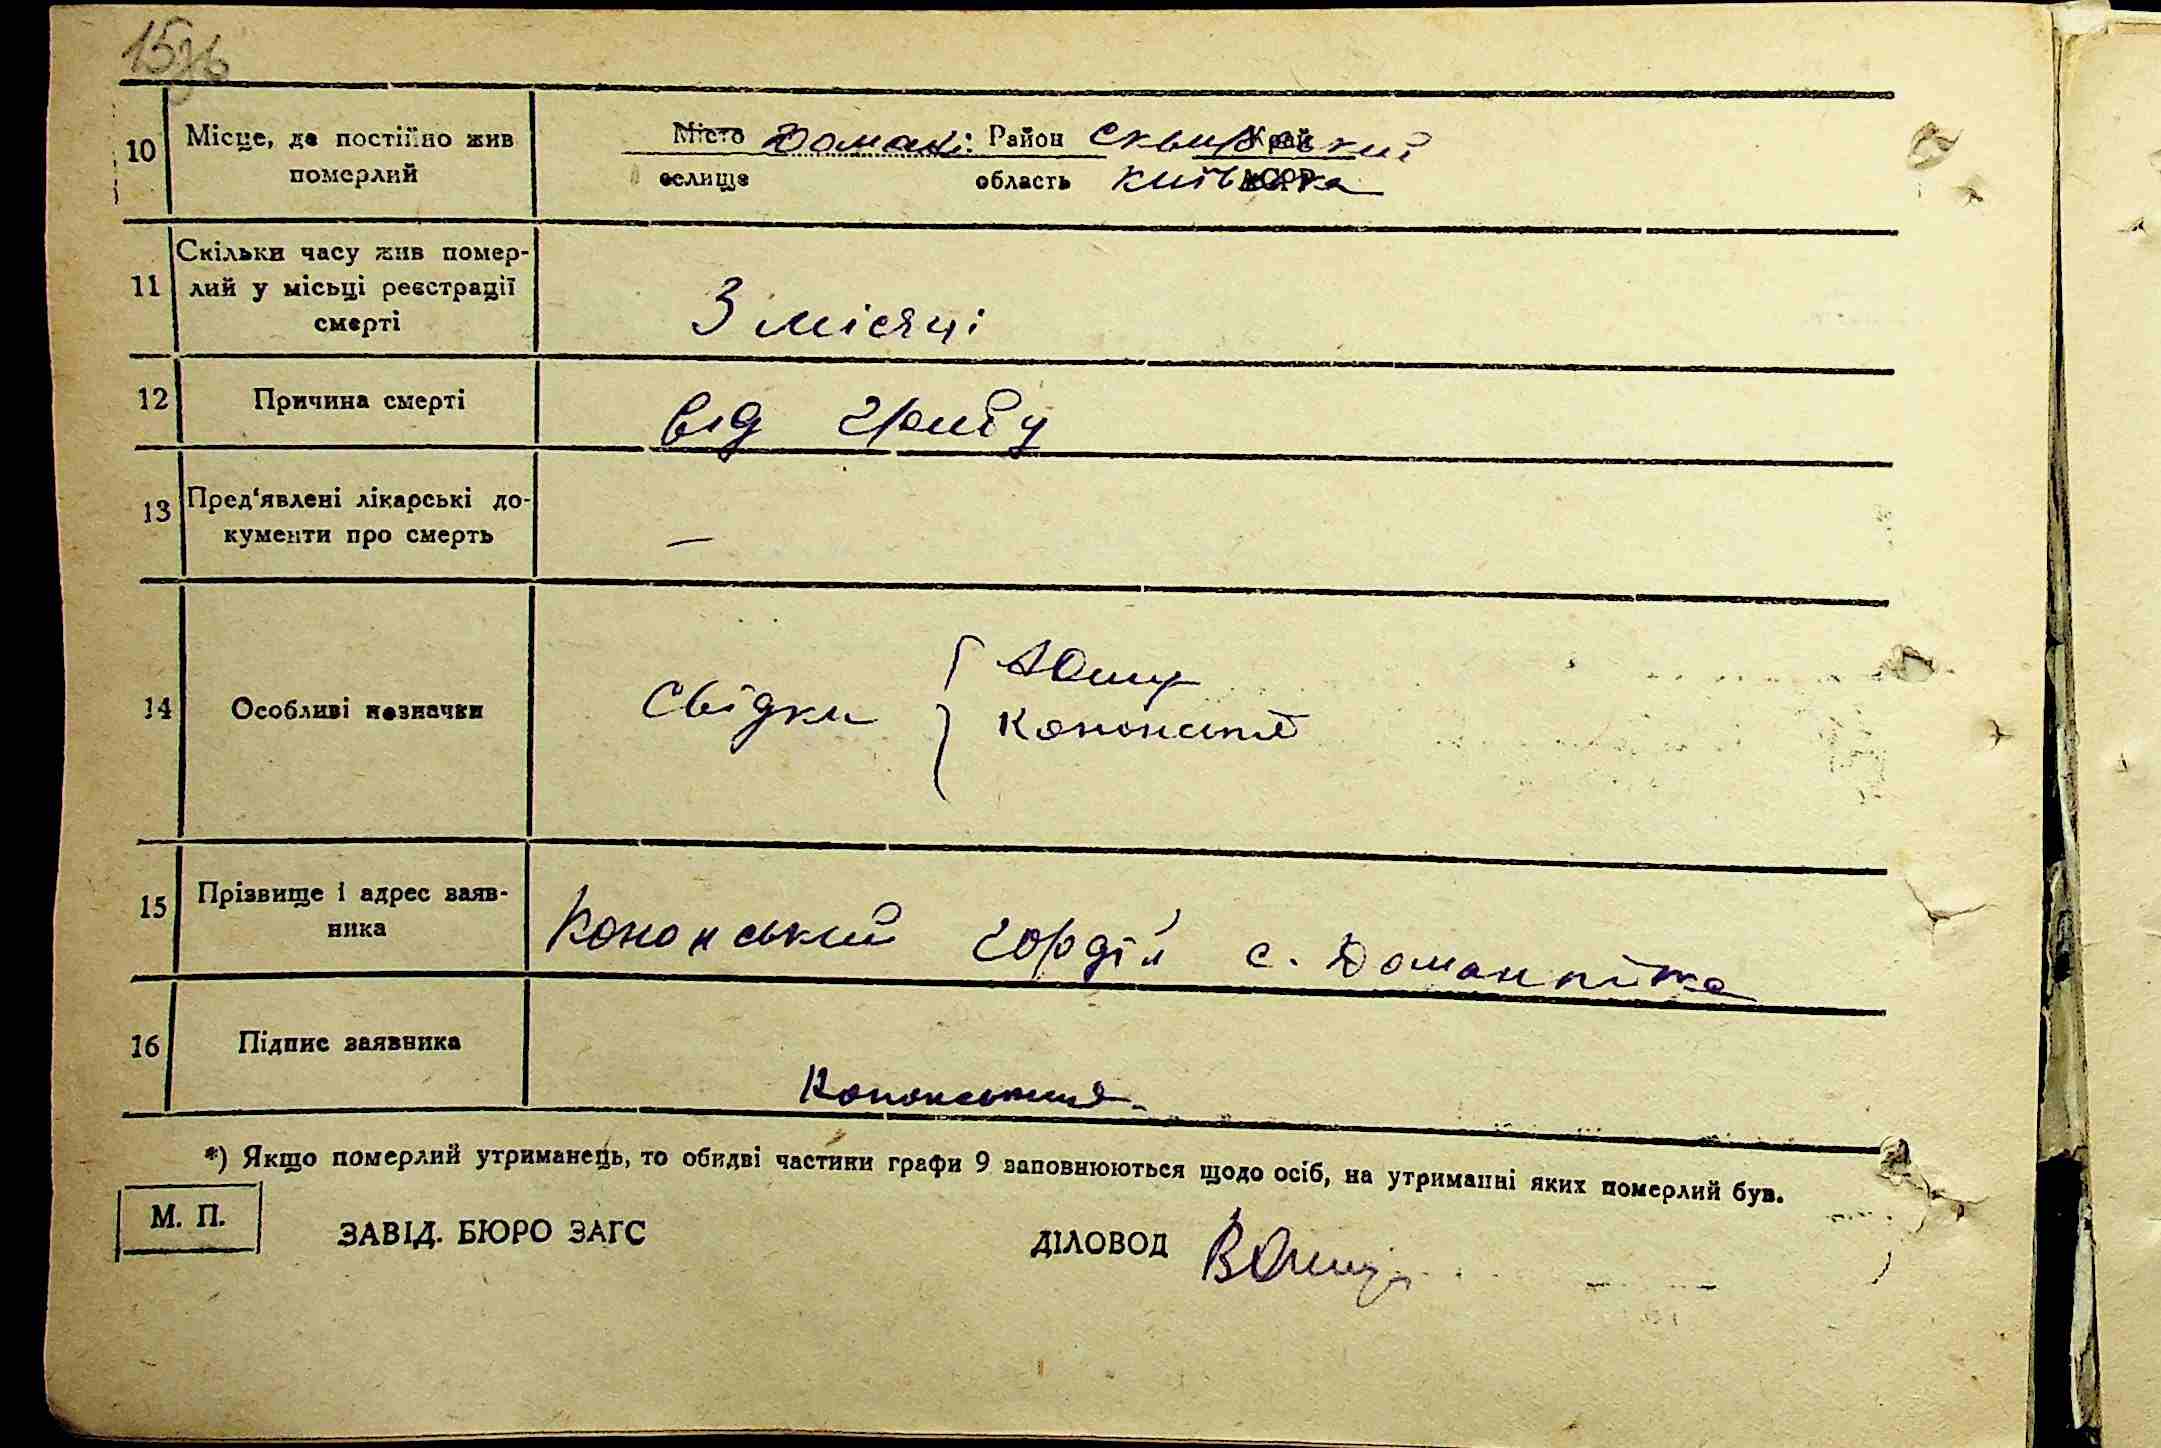 15зв
10 Місце, де постійно жив Місто Доман: Район Сквирський Край
померлий селище область Київська АСРР
Скільки часу жив помер-
11 лий у місьці реєстрації 3 місяці
смерті
12 Причина смерті від грипу
13 Пред'явлені лікарські до-
кументи про смерть —
14 Особливі позначки Свідки
15 Прізвище і адрес заяв- Кононський Гордій с. Домантівка
ника
16 Підпис заявника Кононський
*) Якщо померлий утриманець, то обидві частини графи 9 заповнюються щодо осіб, на утриманні яких померлий був.
М. П. ЗАВІД. БЮРО ЗАГС ДІЛОВОД